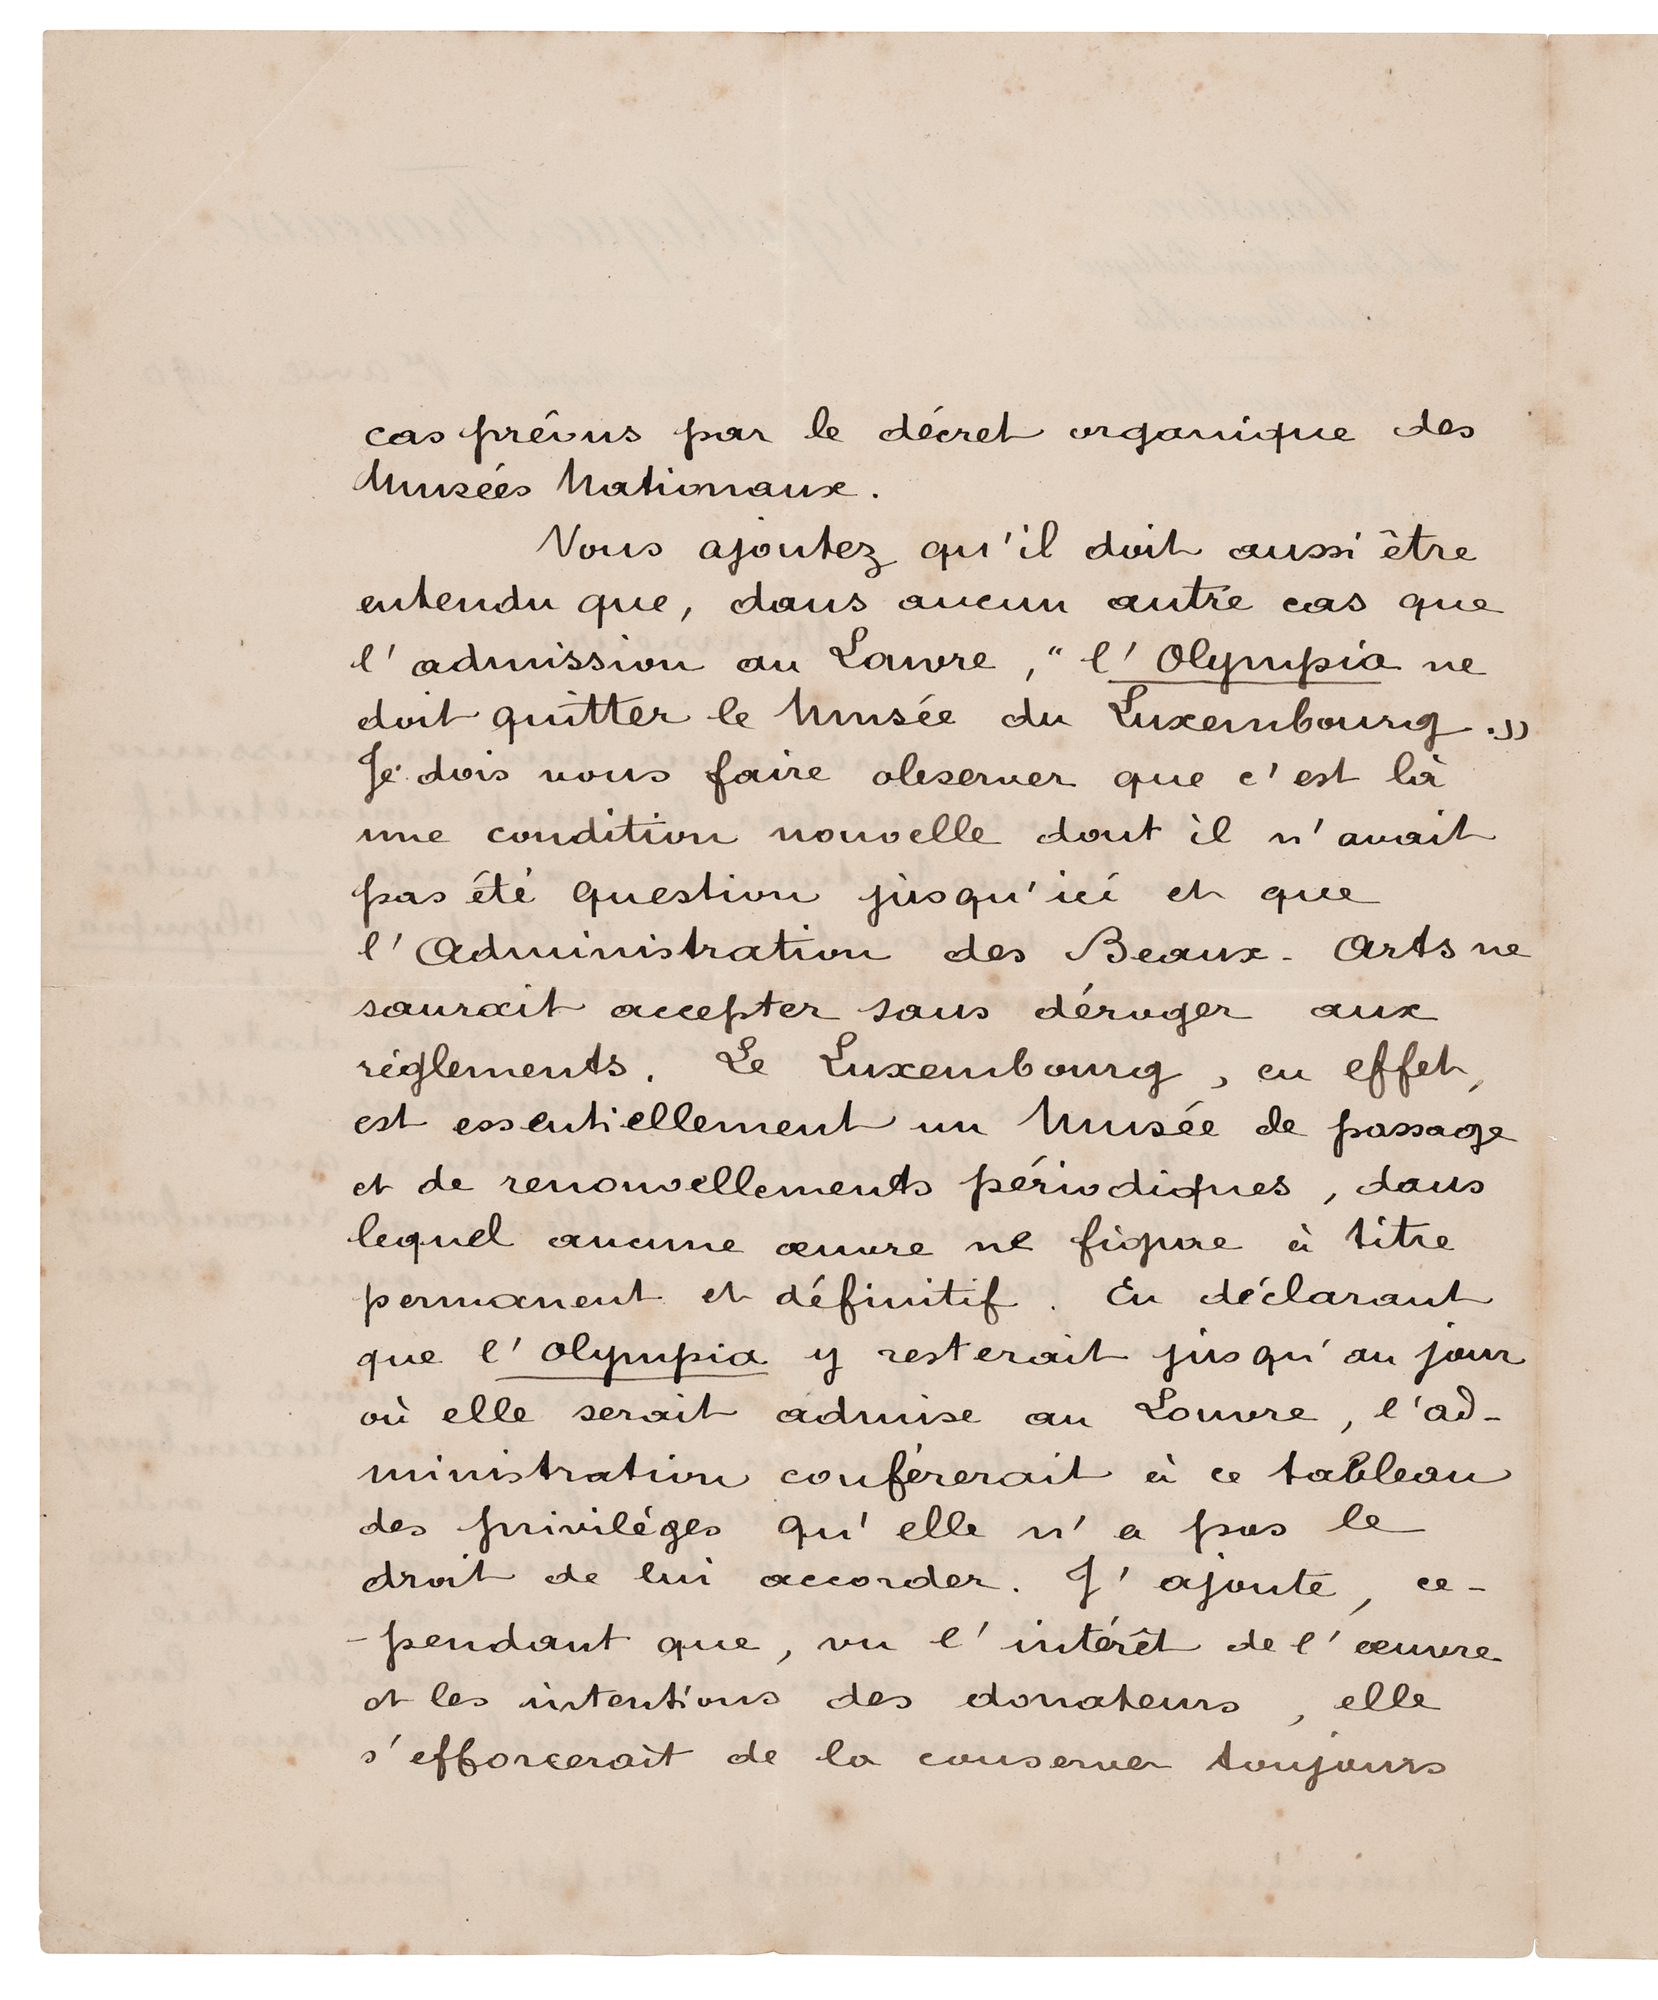 cas prévus par le décret organique des
Musées Nationaux.
Vous ajoutez qu'il doit aussi être
entendu que, dans aucun autre cas que
l'admission au Louvre, "l'Olympia ne
doit quitter le Musée du Luxembourg."
Je dois vous faire observer que c'est là
une condition nouvelle dont il n'avait
pas été question jusqu'ici et que
l'Administration des Beaux-Arts ne
saurait accepter sans déroger aux
réglements. Le Luxembourg, en effet,
est essentiellement un Musée de passage
et de renouvellements périodiques, dans
lequel aucune œuvre ne figure à titre
permanent et définitif. En déclarant
que l'Olympia y resterait jusqu'au jour
où elle serait admise au Louvre, l'ad-
ministration conférerait à ce tableau
des priviléges qu'elle n'a pas le
droit de lui accorder. J'ajoute, ce-
-pendant que, vu l'intérêt de l'œuvre
et les intentions des donateurs, elle
s'efforcerait de la conserver toujours